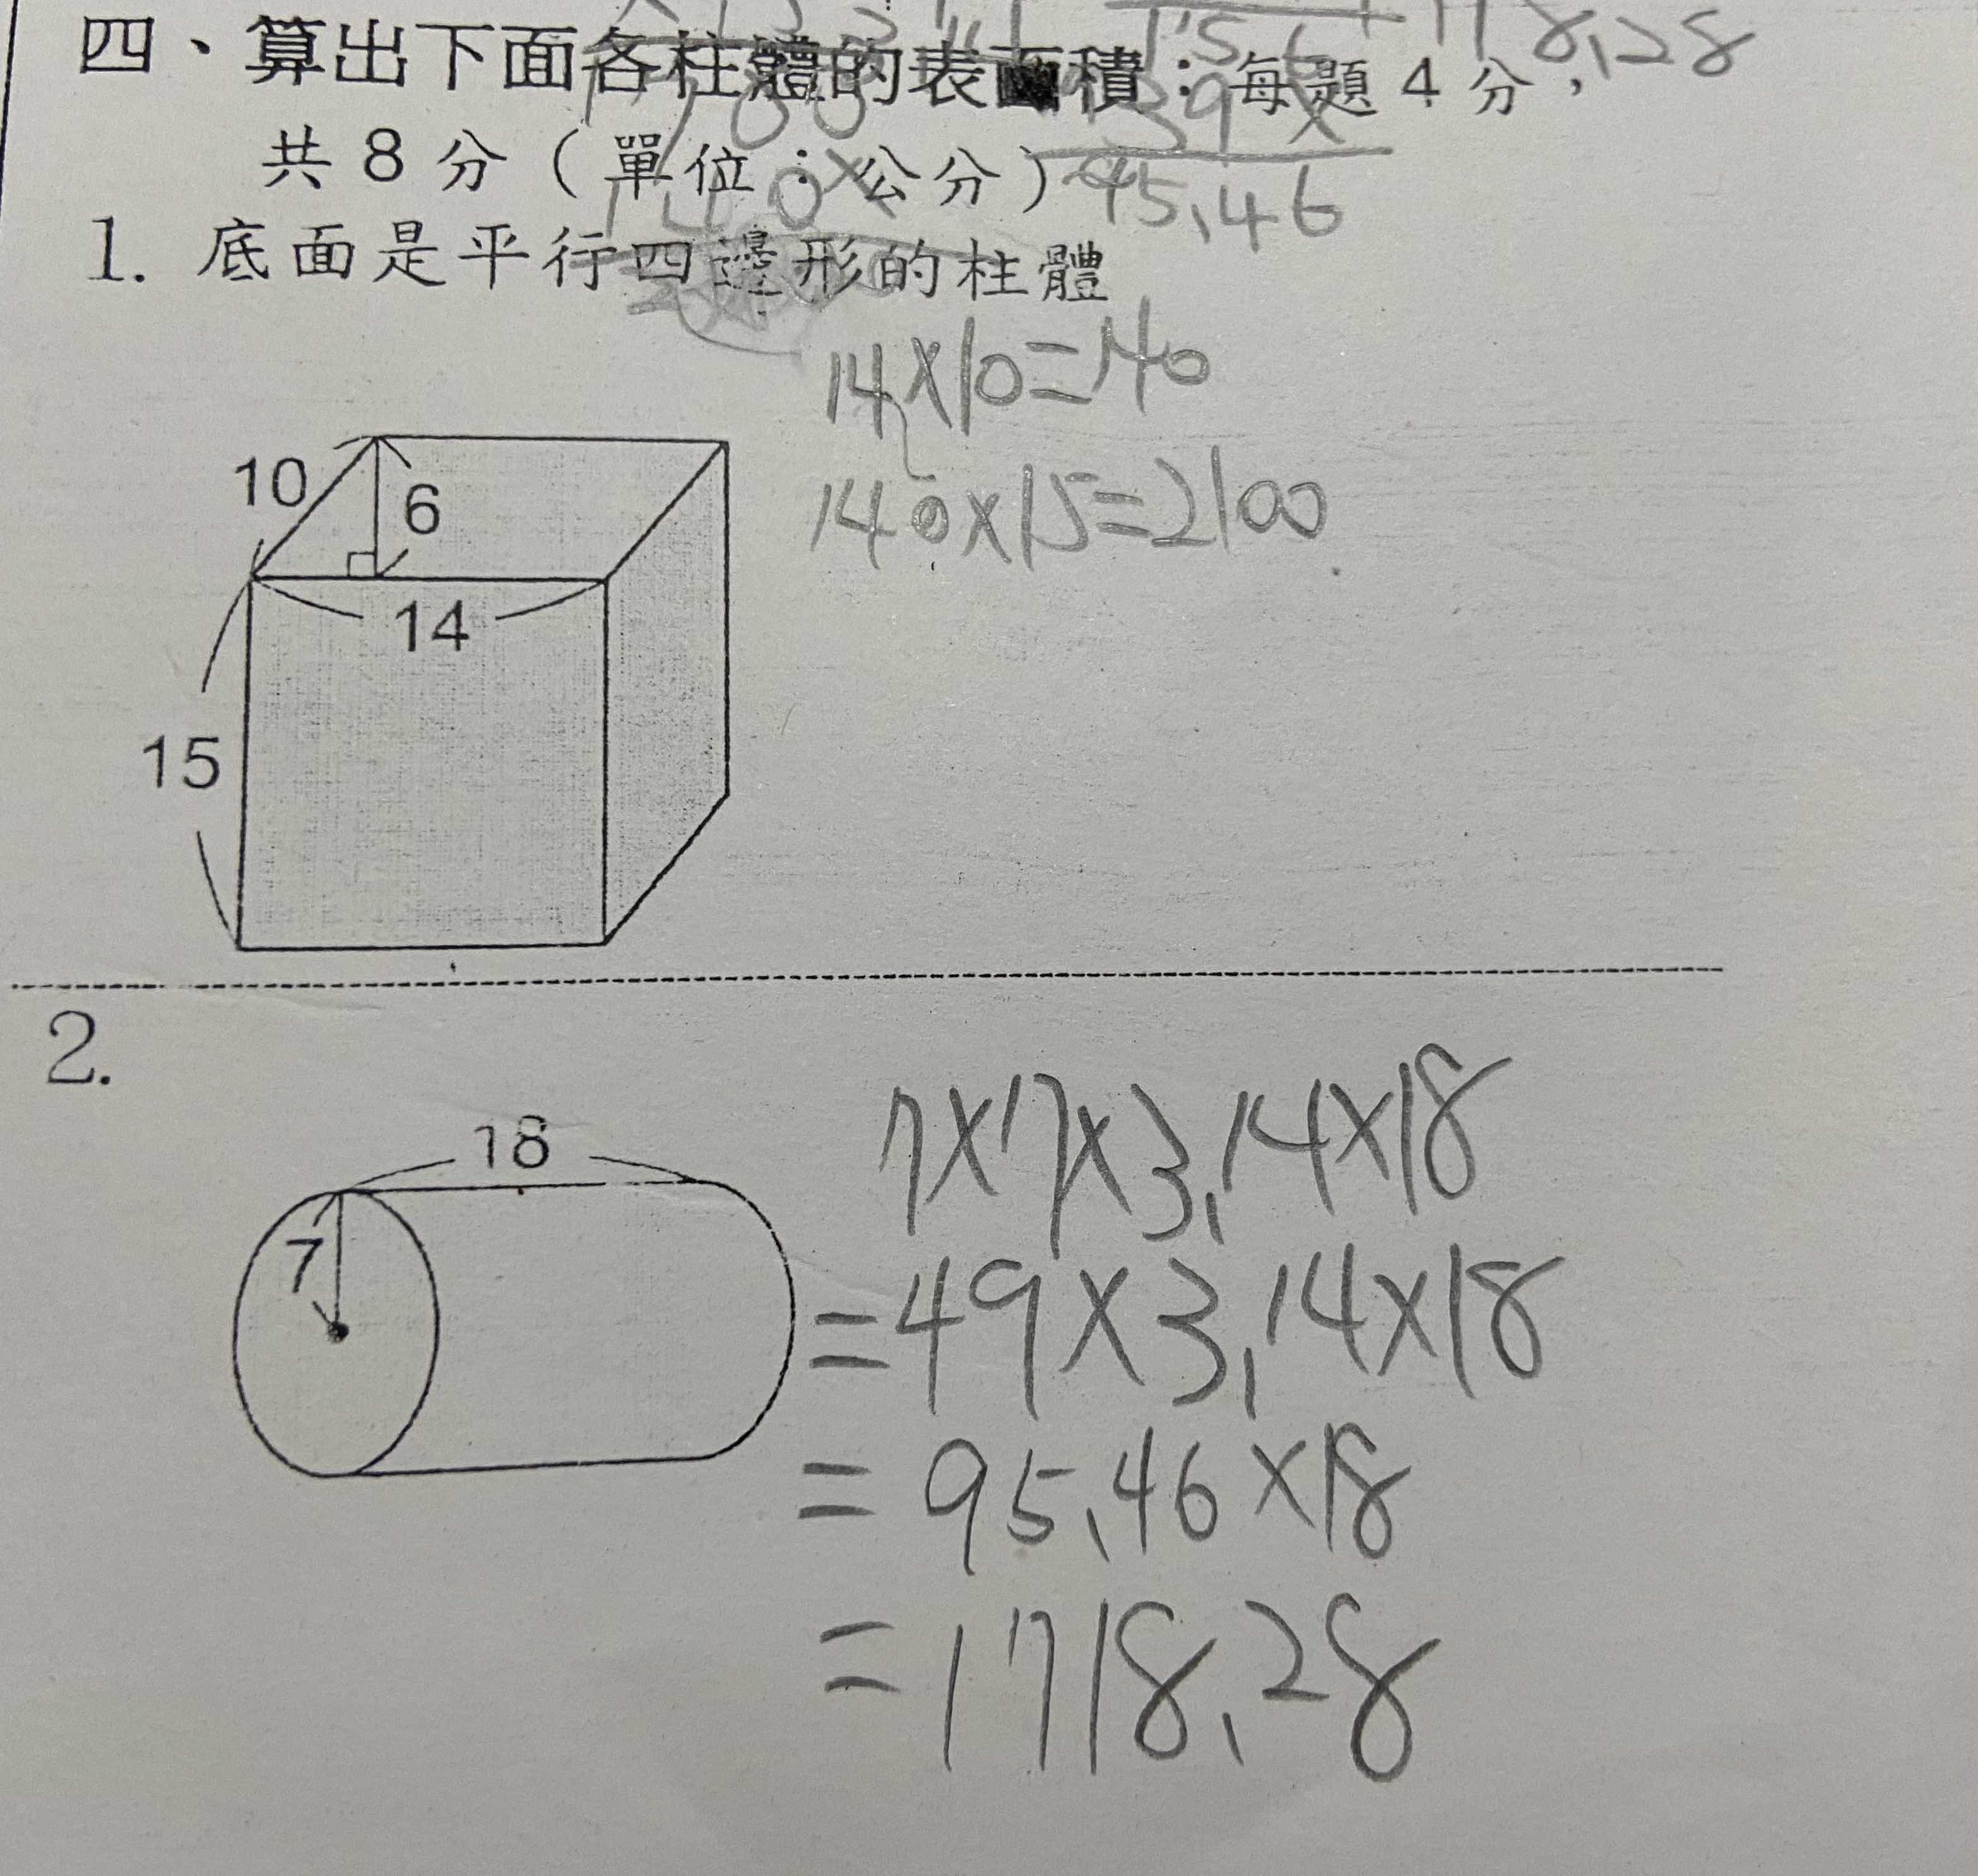 8.28
156
四、算出下面各柱體的表面積：每題4分，
39
共8分（單位：公分）
45.46
1. 底面是平行四邊形的柱體
14×10=140
140×15=2100
10
6
14
15
2.
18
7
7×7×3.14×18
=49×3.14×18
=95.46×18
=1718.28